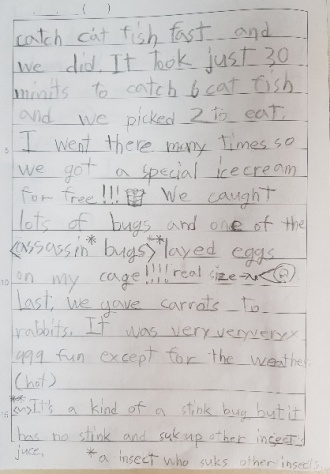 ( )
catch cat fish fast and
we did. It took just 30
minits to catch 6 cat fish
and we picked 2 to eat.
5
I went there many times so
we got a special icecream
for free!!! We caught
lots of bugs and one of the
<assassin* bugs>** layed eggs
10
on my cage!!!! real size→
Last, we gave carrots to
rabbits. It was very very very x
999 fun except for the weather
(hot)
15
** It's a kind of a stink bug but it
has no stink and suk up other incect's
juce. *a insect who suks other insects